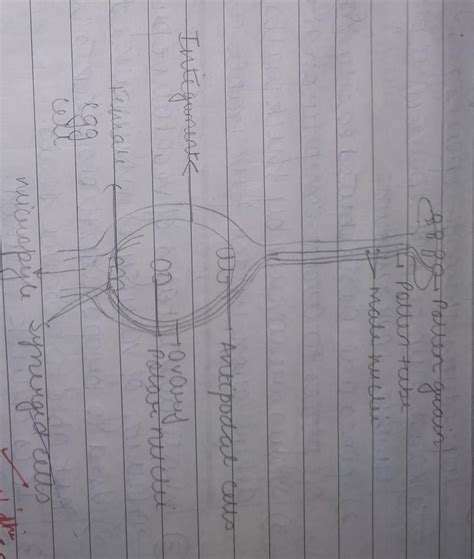 Pollen grain
Pollen tube
Male nuclei
Antipodal cells
Ovary
Polar nuclei
Integument
Female
egg
cell
micropyle
Synergid cells